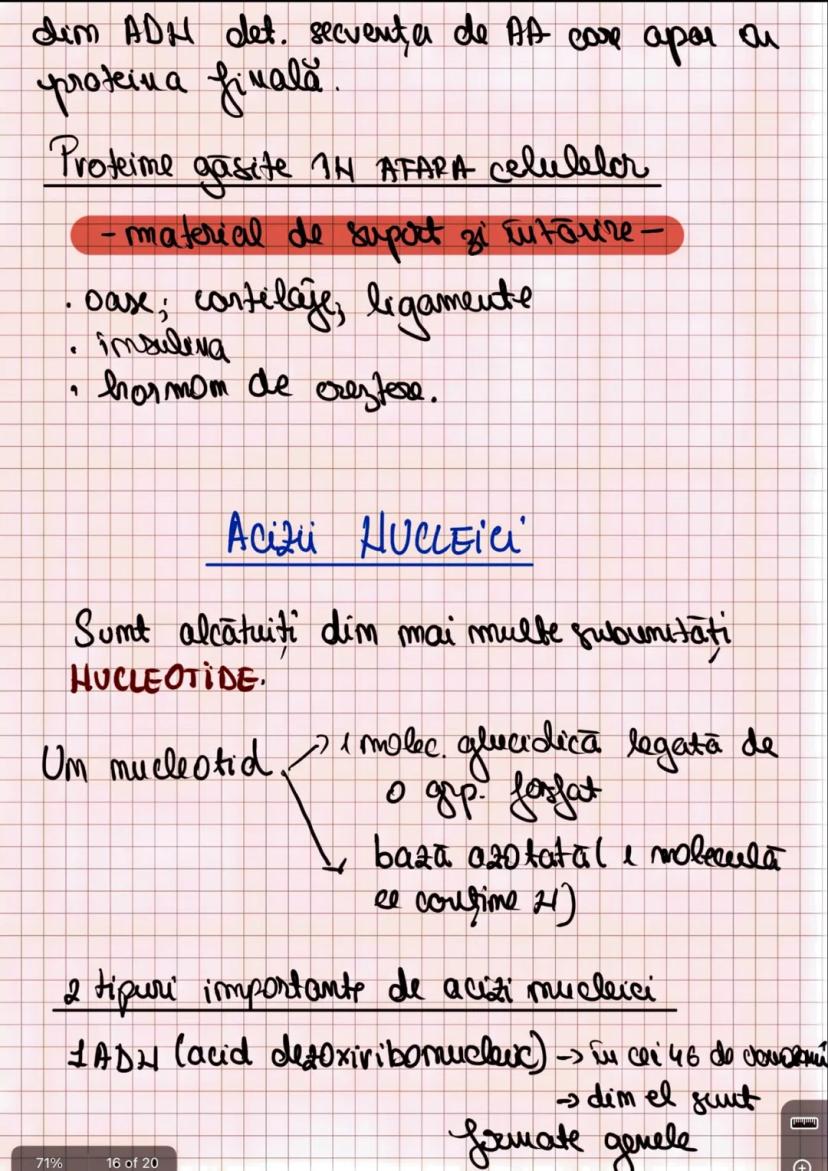 din ADN det. secvența de AA care apar în
proteina finală.
Proteine găsite ÎN AFARA celulelor
- material de suport și întărire -
· oase; cartilaje; ligamente
· insulina
· hormon de creștere.
Acizii NUCLEICI
Sunt alcătuiți din mai multe subunități
NUCLEOTIDE.
Un nucleotid → 1 molec. glucidică legată de
o grp. fosfat
→ bază azotată ( 1 moleculă
ce conține N)
2 tipuri importante de acizi nucleici
1 ADN (acid dezoxiribonucleic) → în cei 46 de
→ din el sunt
formate genele
71% 16 of 20